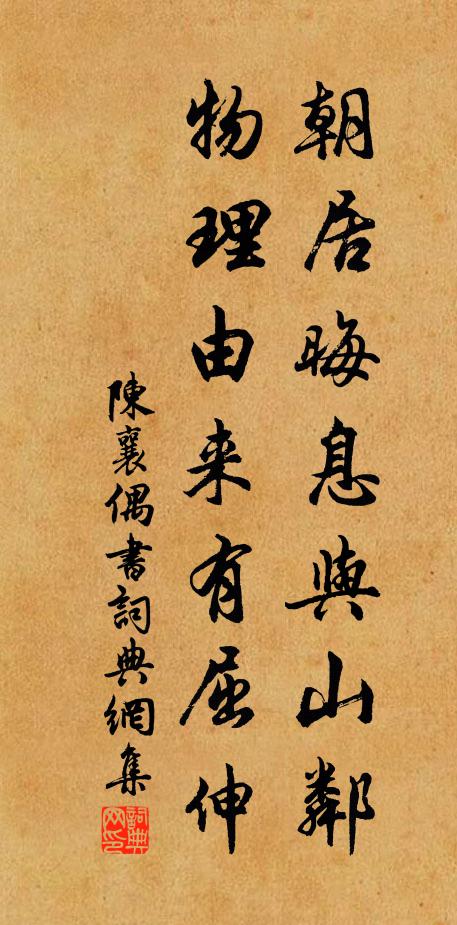 朝居晦息與山鄰
物理由来有屈伸
陳襄偶書詞典網集
詞典網印